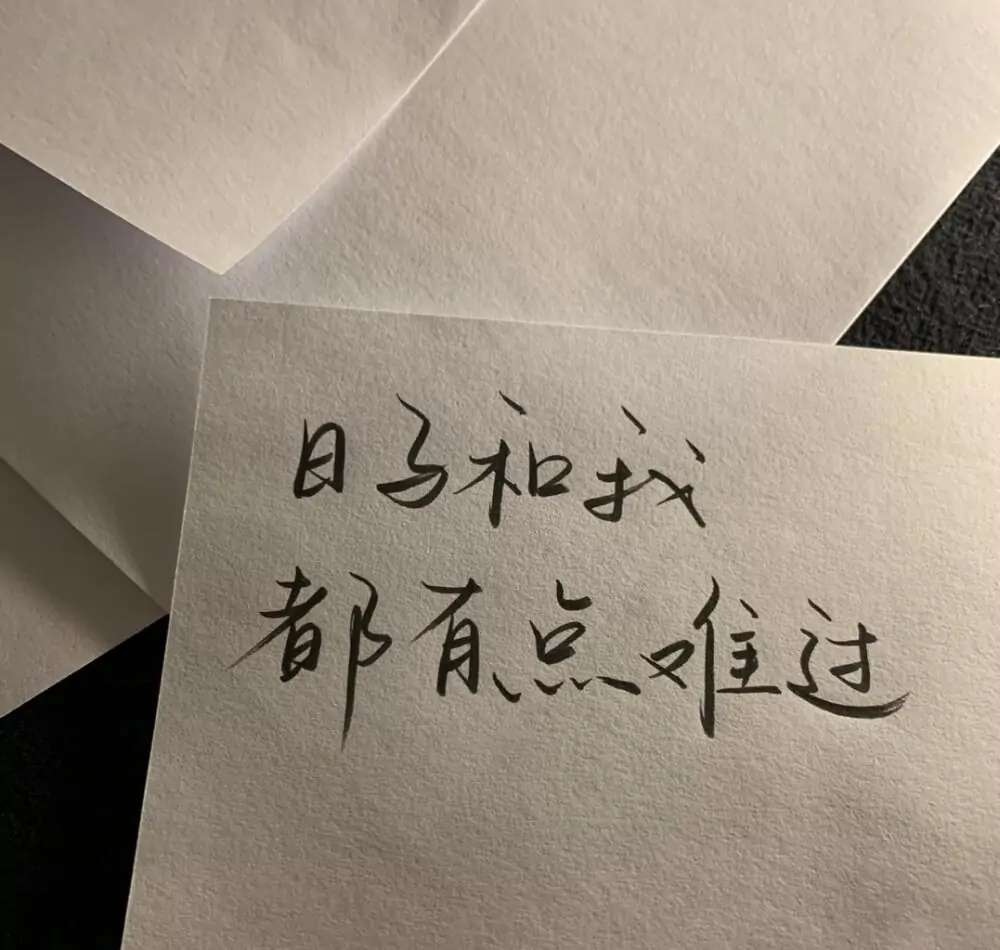 日子和我
都有点难过